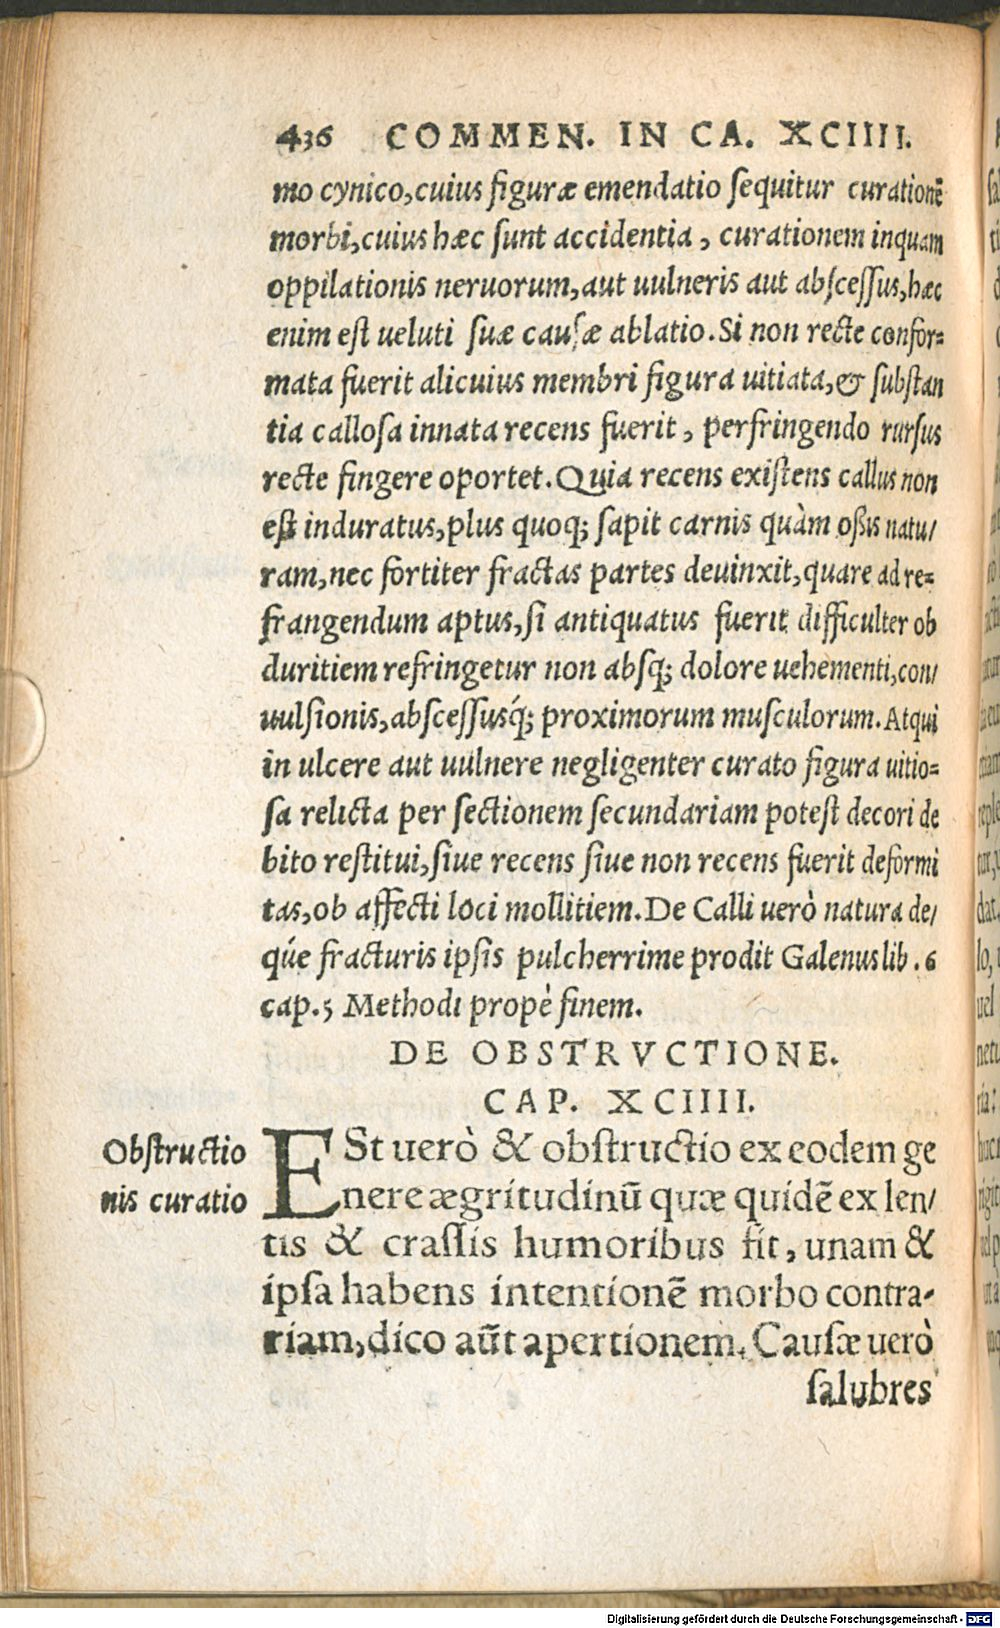 436 COMMEN. IN CA. XCIIII.
mo cynico, cuius figuræ emendatio sequitur curationē
morbi, cuius hæc sunt accidentia, curationem inquam
oppilationis neruorum, aut uulneris aut abscessus, hæc
enim est ueluti suæ causæ ablatio. Si non recte confor=
mata fuerit alicuius membri figura uitiata, & substan
tia callosa innata recens fuerit, perfringendo rursus
recte fingere oportet. Quia recens existens callus non
est induratus, plus quoq; sapit carnis quàm oßis natu/
ram, nec fortiter fractas partes deuinxit, quare ad re=
frangendum aptus, si antiquatus fuerit difficulter ob
duritiem refringetur non absq; dolore uehementi, con/
uulsionis, abscessusq́; proximorum musculorum. Atqui
in ulcere aut uulnere negligenter curato figura uitio=
sa relicta per sectionem secundariam potest decori de
bito restitui, siue recens siue non recens fuerit deformi
tas, ob affecti loci mollitiem. De Calli uerò natura de/
q́ue fracturis ipsis pulcherrime prodit Galenus lib. 6
cap. 5 Methodi propè finem.
DE OBSTRVCTIONE.
CAP. XCIIII.
Obstructio
nis curatio
ESt uerò & obstructio ex eodem ge
nere ægritudinū quæ quidē ex len/
tis & crassis humoribus fit, unam &
ipsa habens intentionē morbo contra-
riam, dico aūt apertionem. Causæ uerò
salubres
Digitalisierung gefördert durch die Deutsche Forschungsgemeinschaft - DFG